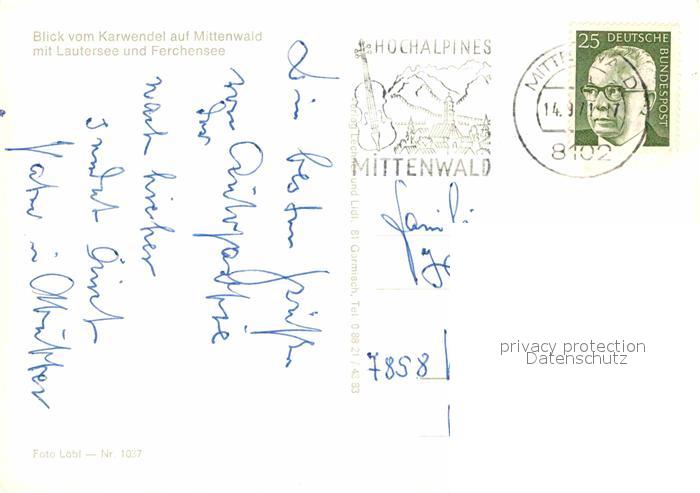 Blick vom Karwendel auf Mittenwald
mit Lautersee und Ferchensee
Die besten Grüße
von
nach hierher
sendet Euch
Vater u. Mutter
HOCHALPINES
MITTENWALD
MITTENWALD
14.9.71-17
8102
25 DEUTSCHE BUNDESPOST
und Lidl, 81 Garmisch, Tel. 0 88 21 /
Famili
7858
privacy protection
Datenschutz
Foto Löbl — Nr. 1037